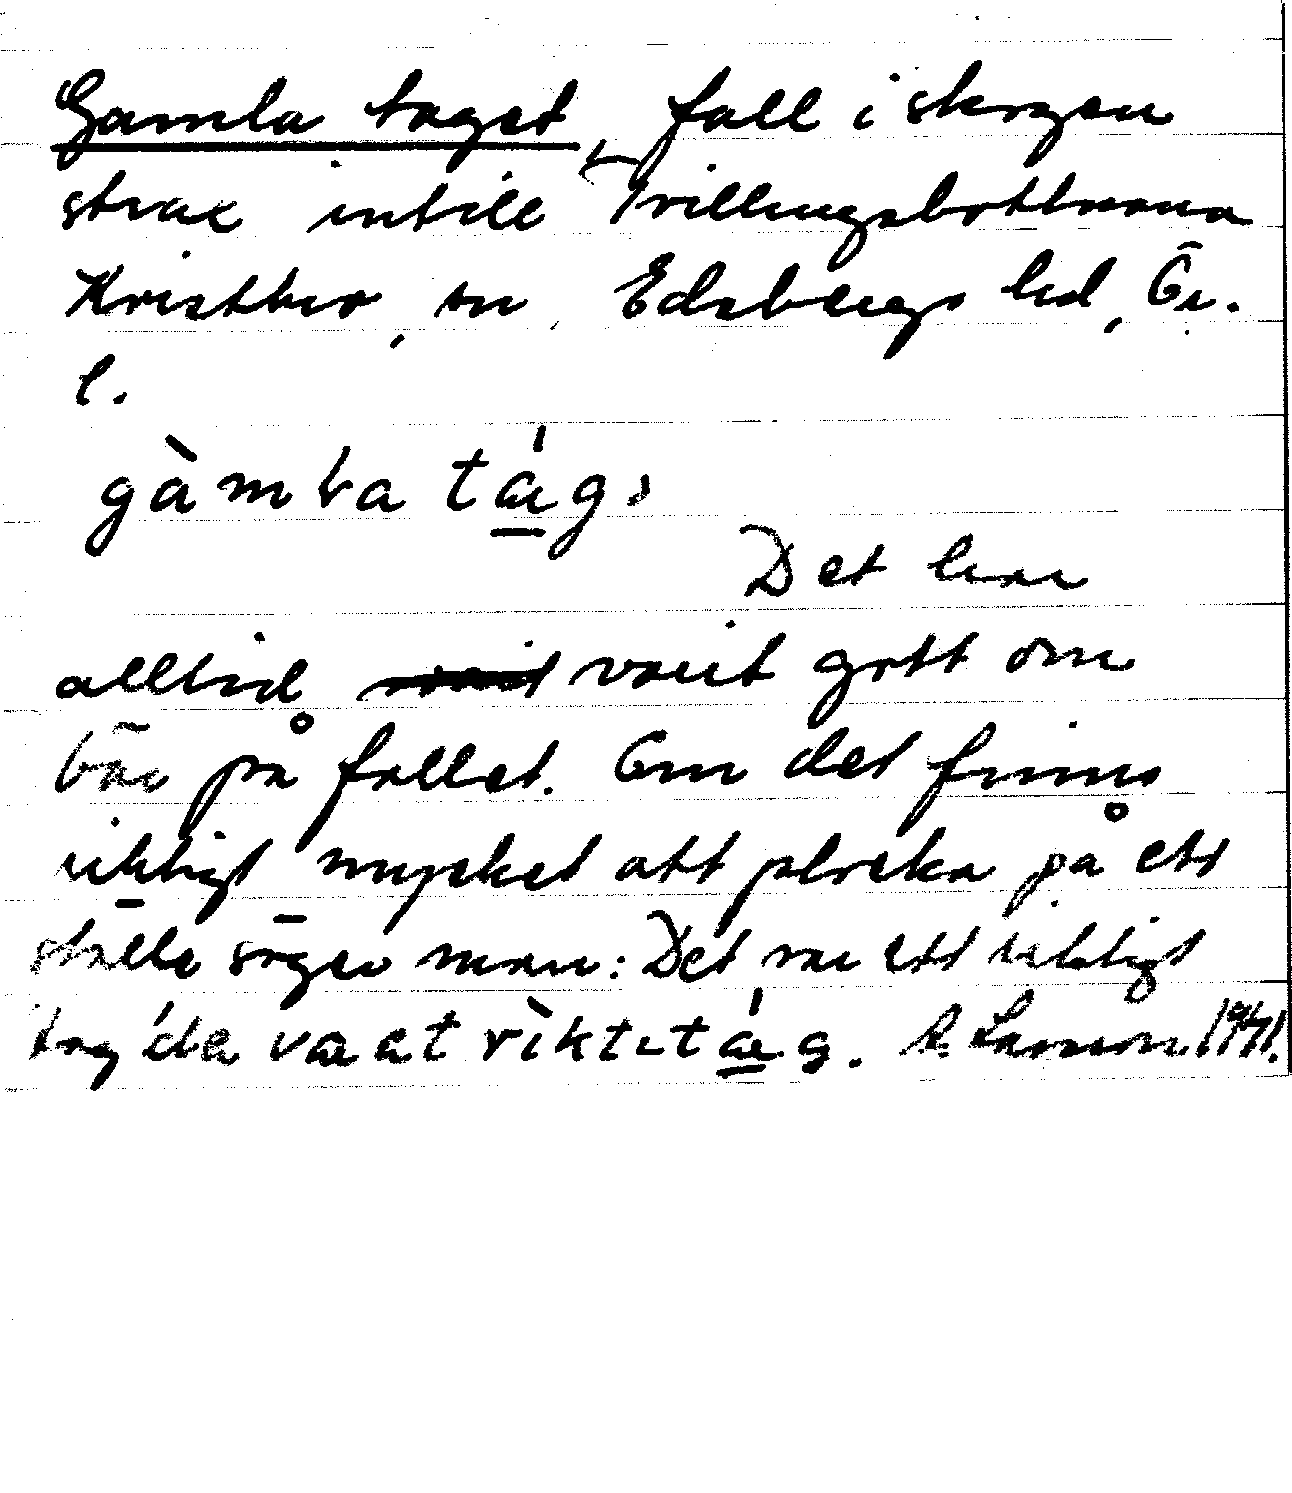 Gamla taget, fall i skogen
strax intill Trillingsbottnarna
Kvistbro sn, Edsbergs hd, Ör.
l.
gàmLa tág,
Det har
alltid varit gott om
bär på fallet. Om det finns
riktigt mycket att plocka på ett
ställe säger man: Det var ett riktigt
tag 'de va et rìktit ág. R. Larsson 1941.